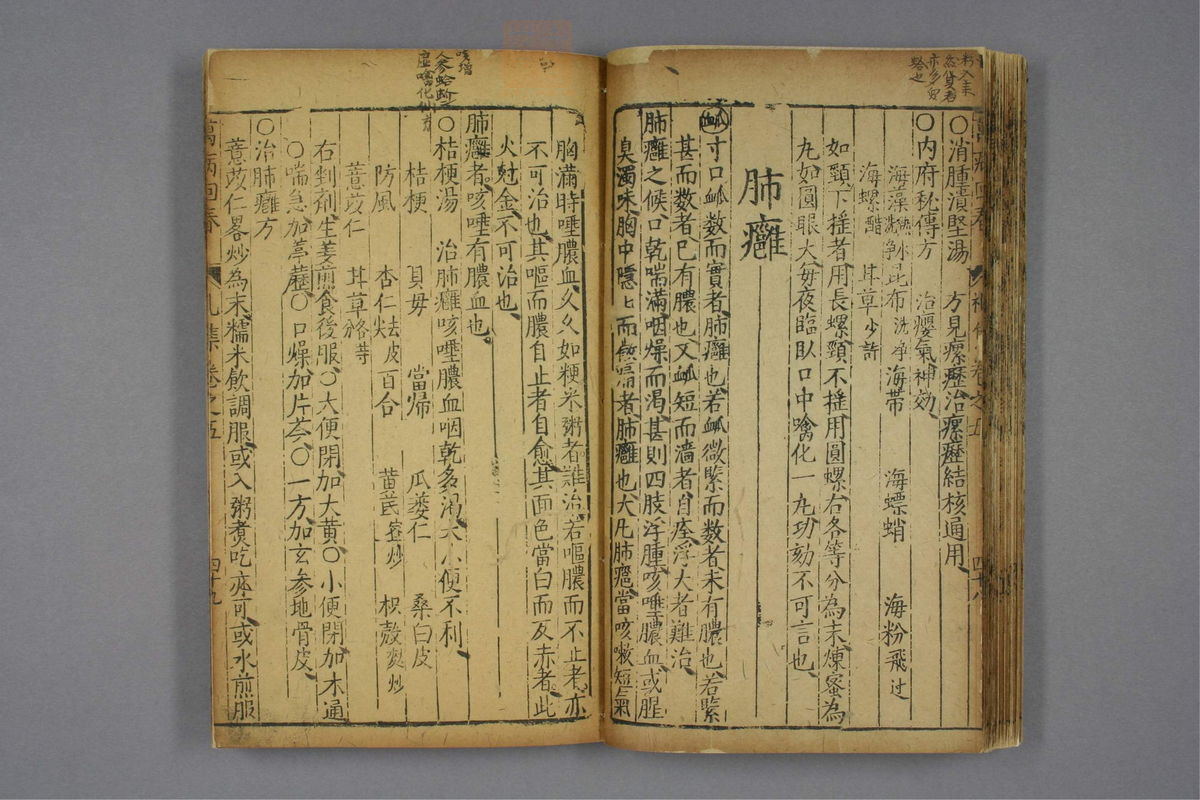 ○消腫潰堅湯 方見瘰癧治瘰癧結核通用
○内府秘傳方 治癭氣神効
海藻熱水洗淨 昆布洗淨 海帶 海螵蛸 海粉飛过
海螺醋 甘草少許
如頸下揺者用長螺頸不揺用圓螺右各等分為末煉蜜為
九如圓眼大每夜臨臥口中噙化一九功効不可言也
肺癰
䘑寸口䘑数而實者肺癰也若䘑微緊而数者未有膿也若緊
甚而数者已有膿也又䘑短而濇者自痊浮大者難治
肺癰之候口乾喘滿咽燥而渴甚則四肢浮腫咳唾膿血或腥
臭濁味胸中隱ヒ而微痛者肺癰也大凡肺癰當咳嗽短氣
胸滿時唾膿血久久如粳米粥者難治若嘔膿而不止者亦
不可治也其嘔而膿自止者自愈其面色當白而反赤者此
火尅金不可治也
肺癰者咳唾有膿血也
○桔梗湯 治肺癰咳唾膿血咽乾多渴大小便不利
桔梗 貝母 當歸 瓜蔞仁 桑白皮
防風 杏仁去皮尖 百合 黃芪蜜炒 枳殼麩炒
薏苡仁 甘草節各等
右剉劑生姜煎食後服○大便閉加大黃○小便閉加木通
○喘急加葶藶○口燥加片芩○一方加玄參地骨皮
○治肺癰方
薏苡仁畧炒為末糯米飲調服或入粥煮吃亦可或水煎服
萬病回春
卷之五
四十九